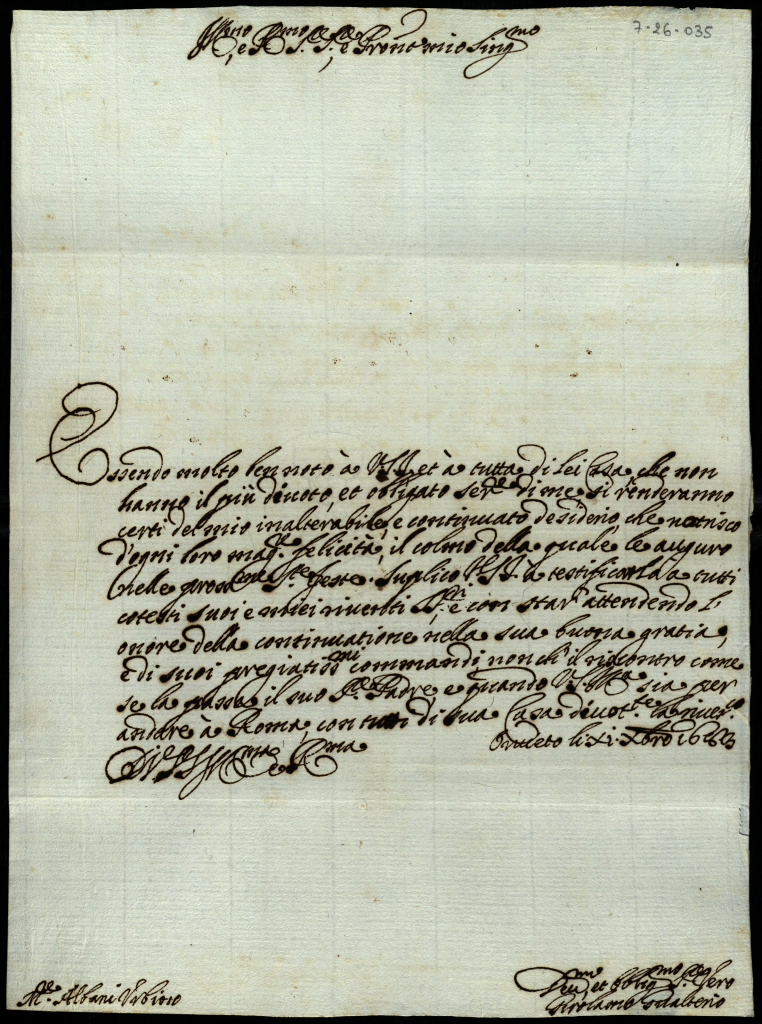 7-26-035
Ill.mo e R.mo S.re S.re e Pron'e mio Sing.mo
Essendo molto ben noto à V.S.Ill. et à tutta di lei Casa che non
hanno il più divoto, et obligato ser.re di me si renderanno
certi del mio inalterabile, e continuato desiderio, che nutrisco
d'ogni loro mag.re felicità, il colmo della quale le auguro
nelle pross.me S.te feste. Suplico V.S.Ill. à testificarla a tutti
cotesti suoi e miei riveriti SS.ri e con star' attendendo l'
onore della continuatione nella sua buona gratia,
e di suoi pregiatiss.mi commandi non ch'il riscontro come
se la passa il suo S.re Padre e quando V.S.Ill.ma sia per
andare à Roma, con tutti di sua Casa divot.te la river.co
Orvieto li XI. Xbre 1683
D. V. S. Ill.ma e R.ma
M.r Albani Urbino
Dev.mo et Oblig.mo S.re Vero
Girolamo Gualterio